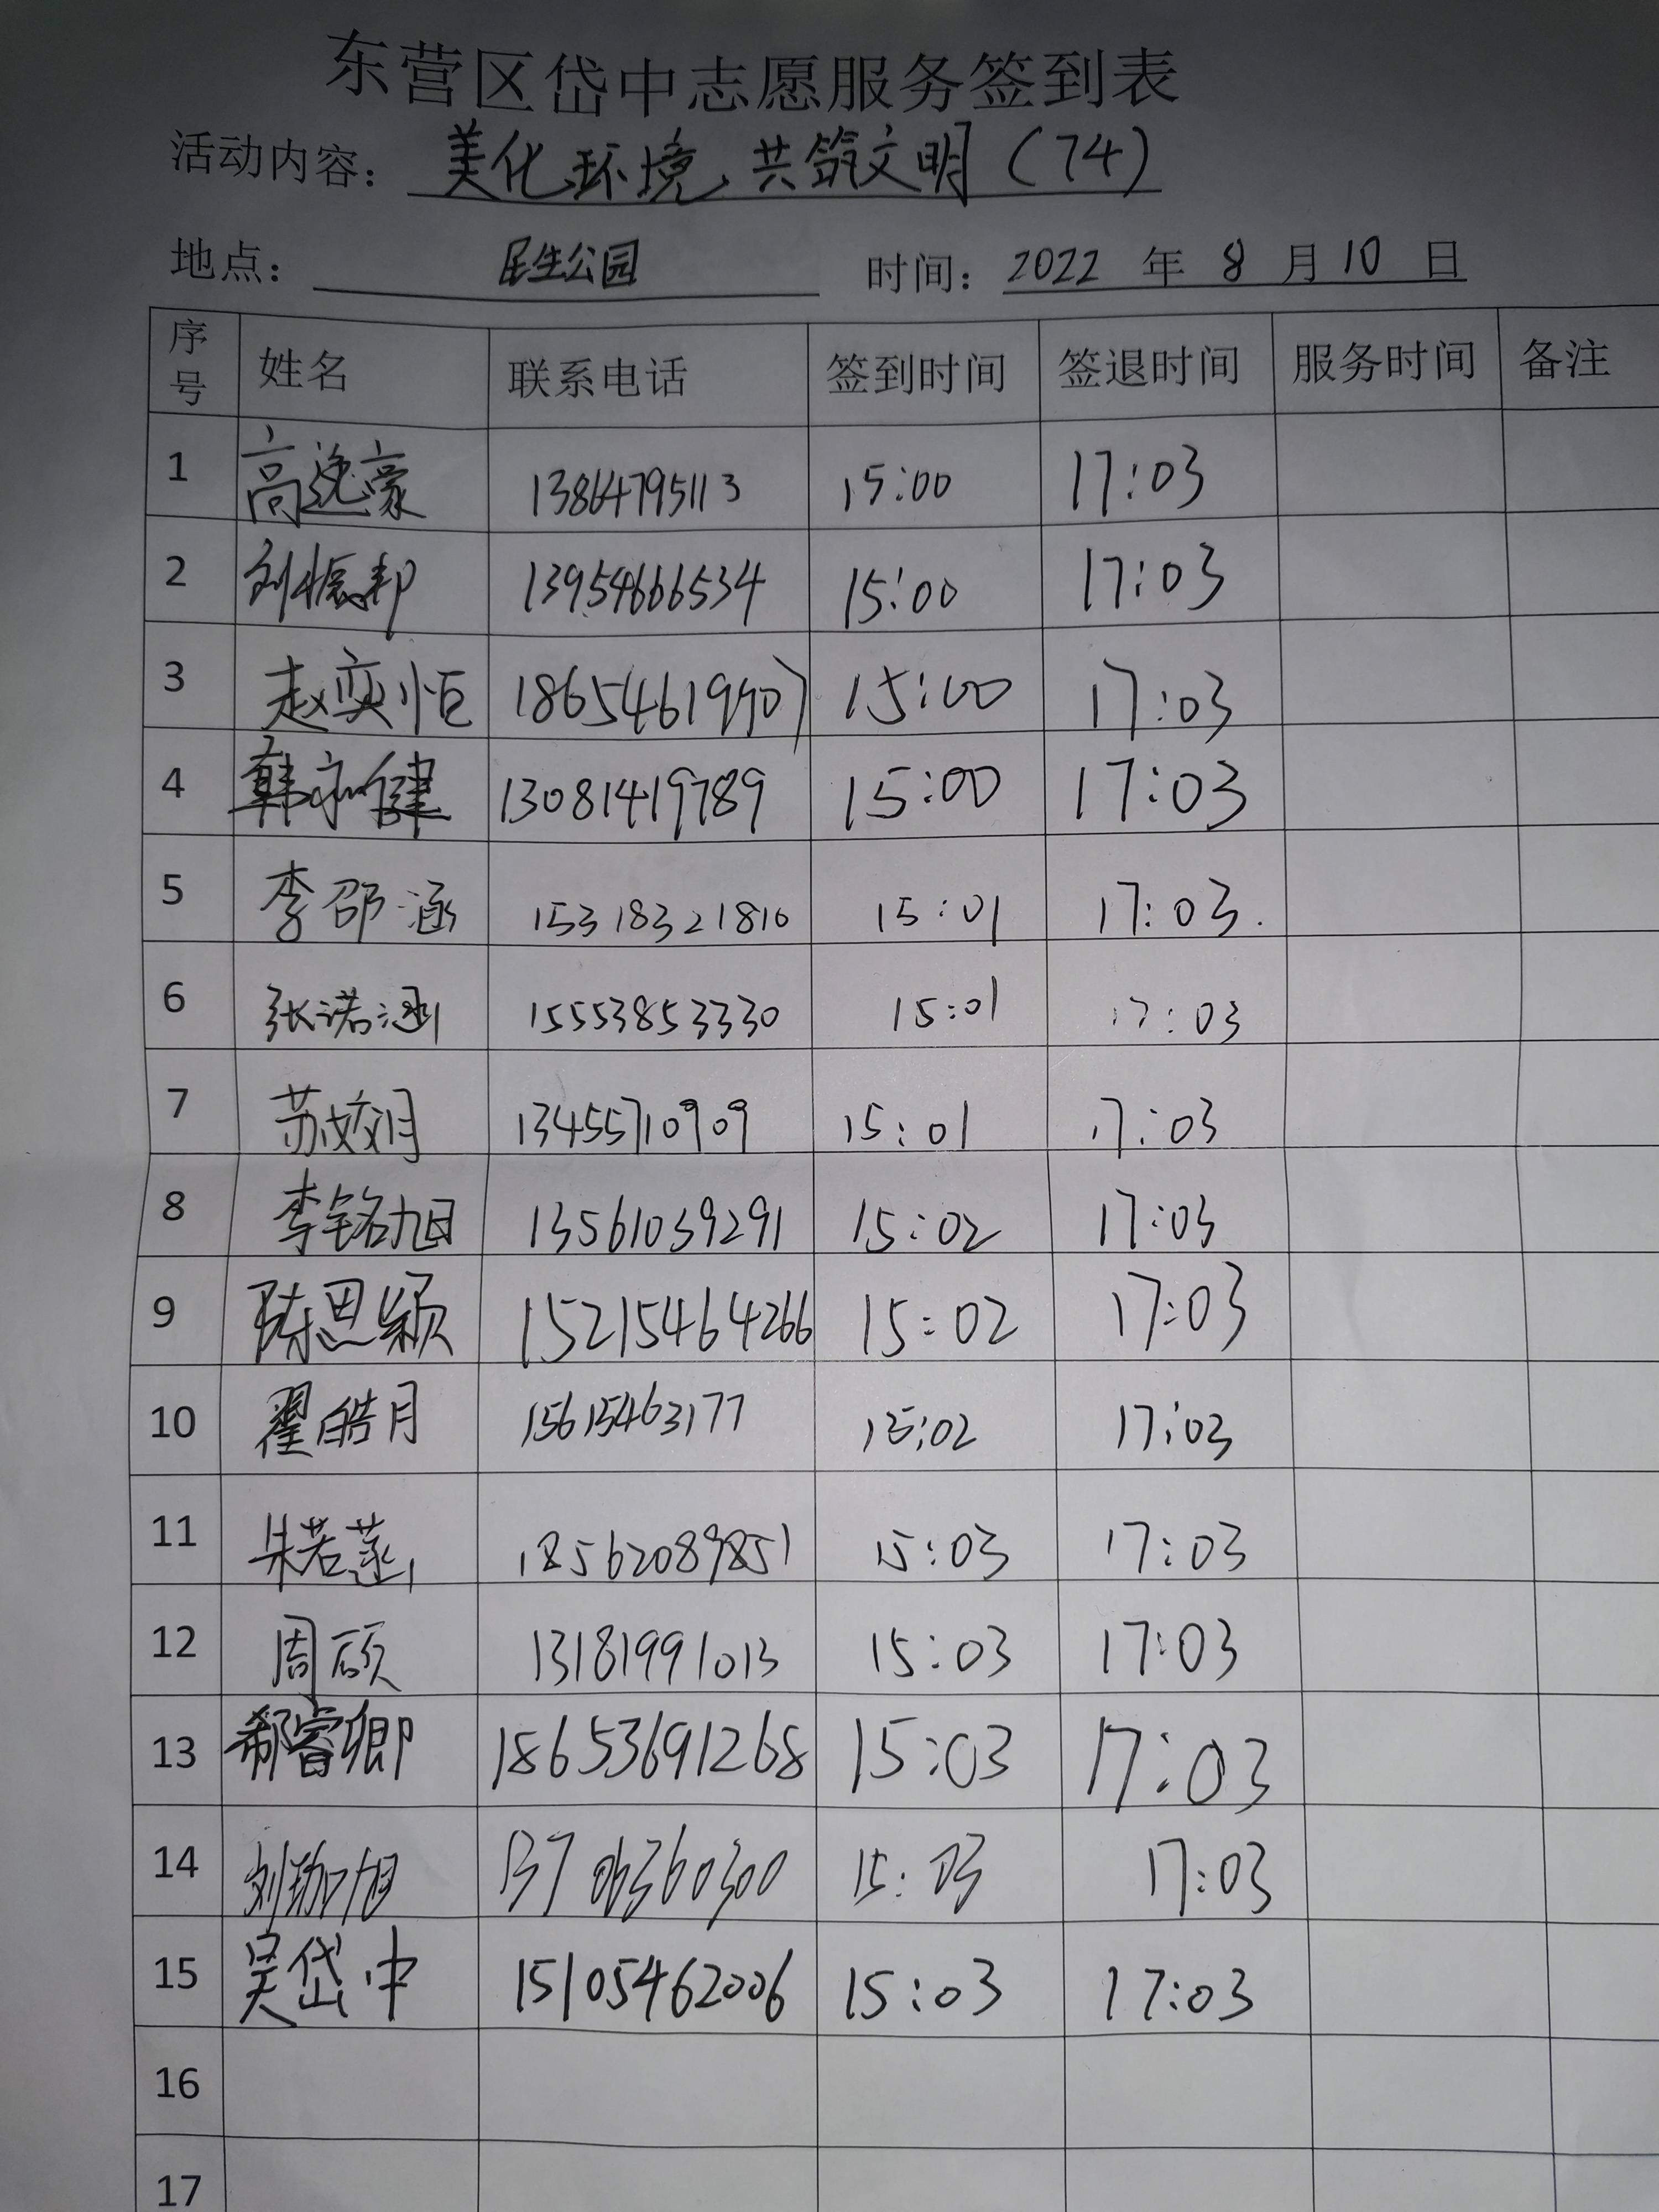 东营区岱中志愿服务签到表
活动内容：美化环境、共筑文明（74）
地点：民生公园 时间：2022 年 8 月 10 日
序号 姓名 联系电话 签到时间 签退时间 服务时间 备注
1 高逸豪 13864795113 15:00 17:03
2 刘振邦 13954666534 15:00 17:03
3 赵奕恒 15:00 17:03
4 韩永健 13081419789 15:00 17:03
5 李邵涵 15318321810 15:01 17:03.
6 张诺涵 15553853330 15:01 17:03
7 苏姣月 13455710909 15:01 17:03
8 李铭旭 13561039291 15:02 17:03
9 陈思颖 15215464266 15:02 17:03
10 翟皓月 15615463177 15:02 17:03
11 朱若菡 18562089851 15:03 17:03
12 周硕 13181991013 15:03 17:03
13 郗睿卿 18653691268 15:03 17:03
14 刘珈旭 13706360300 15:03 17:03
15 吴岱中 15105462006 15:03 17:03
16
17